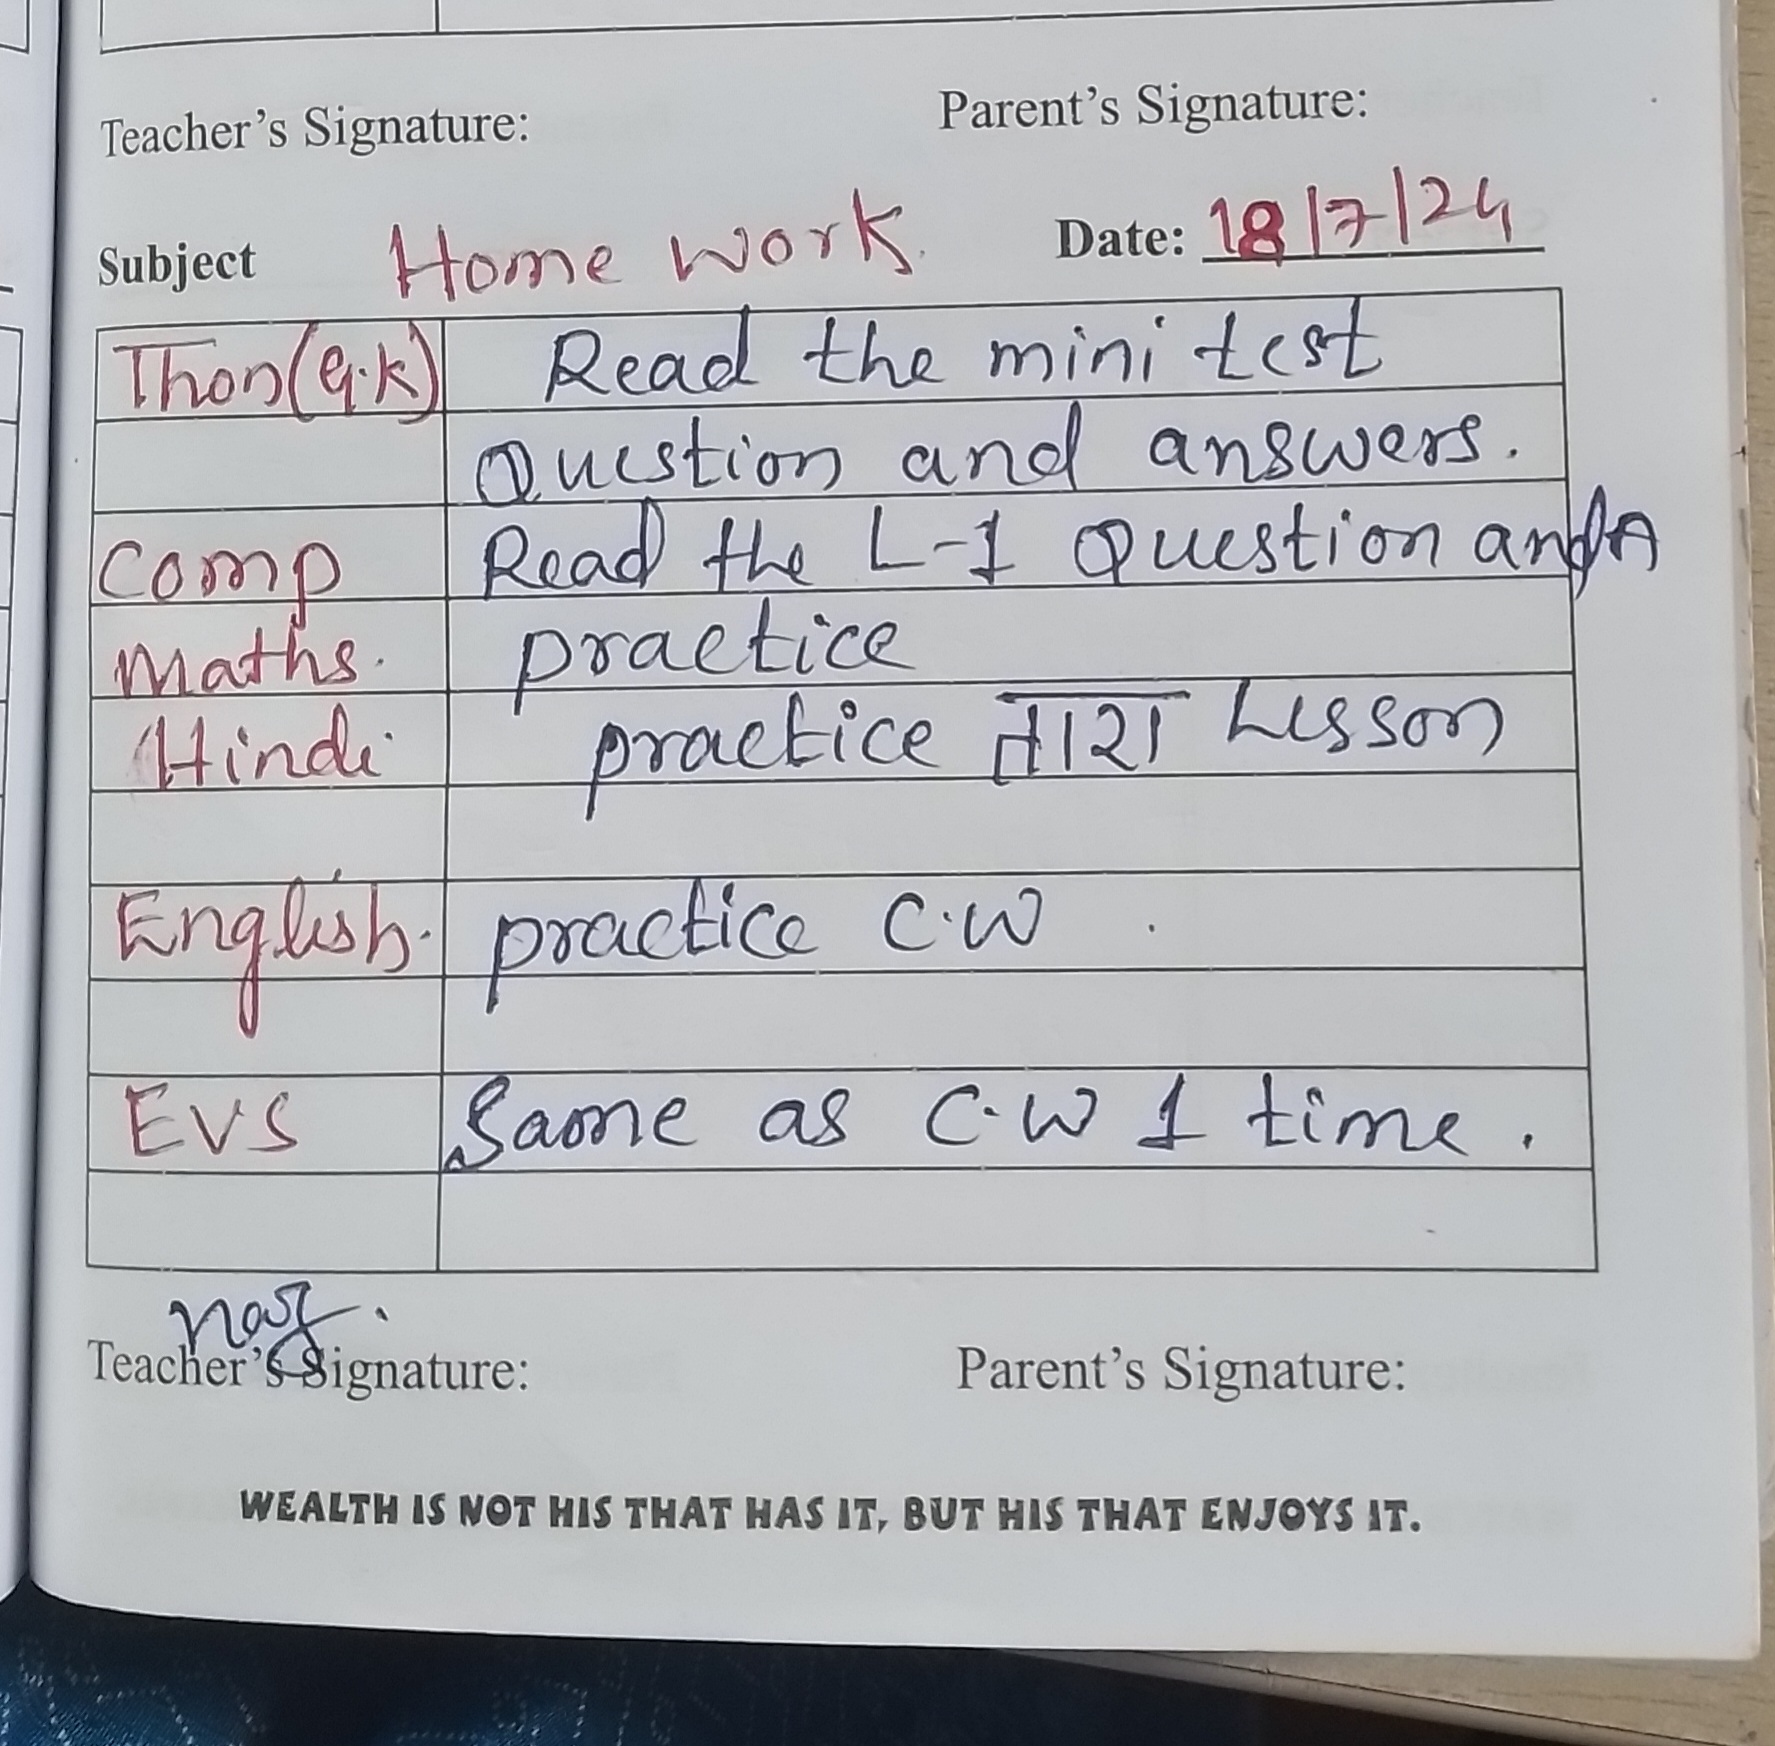 Teacher's Signature: Parent's Signature:
Subject Home work. Date: 18/7/24
Thon(G.K) Read the mini test
Question and answers.
Comp Read the L-1 Question and A
Maths. practice
Hindi practice तारा Lesson
English. practice C.W .
EVS Same as C.W 1 time.
Teacher's Signature: Parent's Signature:
WEALTH IS NOT HIS THAT HAS IT, BUT HIS THAT ENJOYS IT.